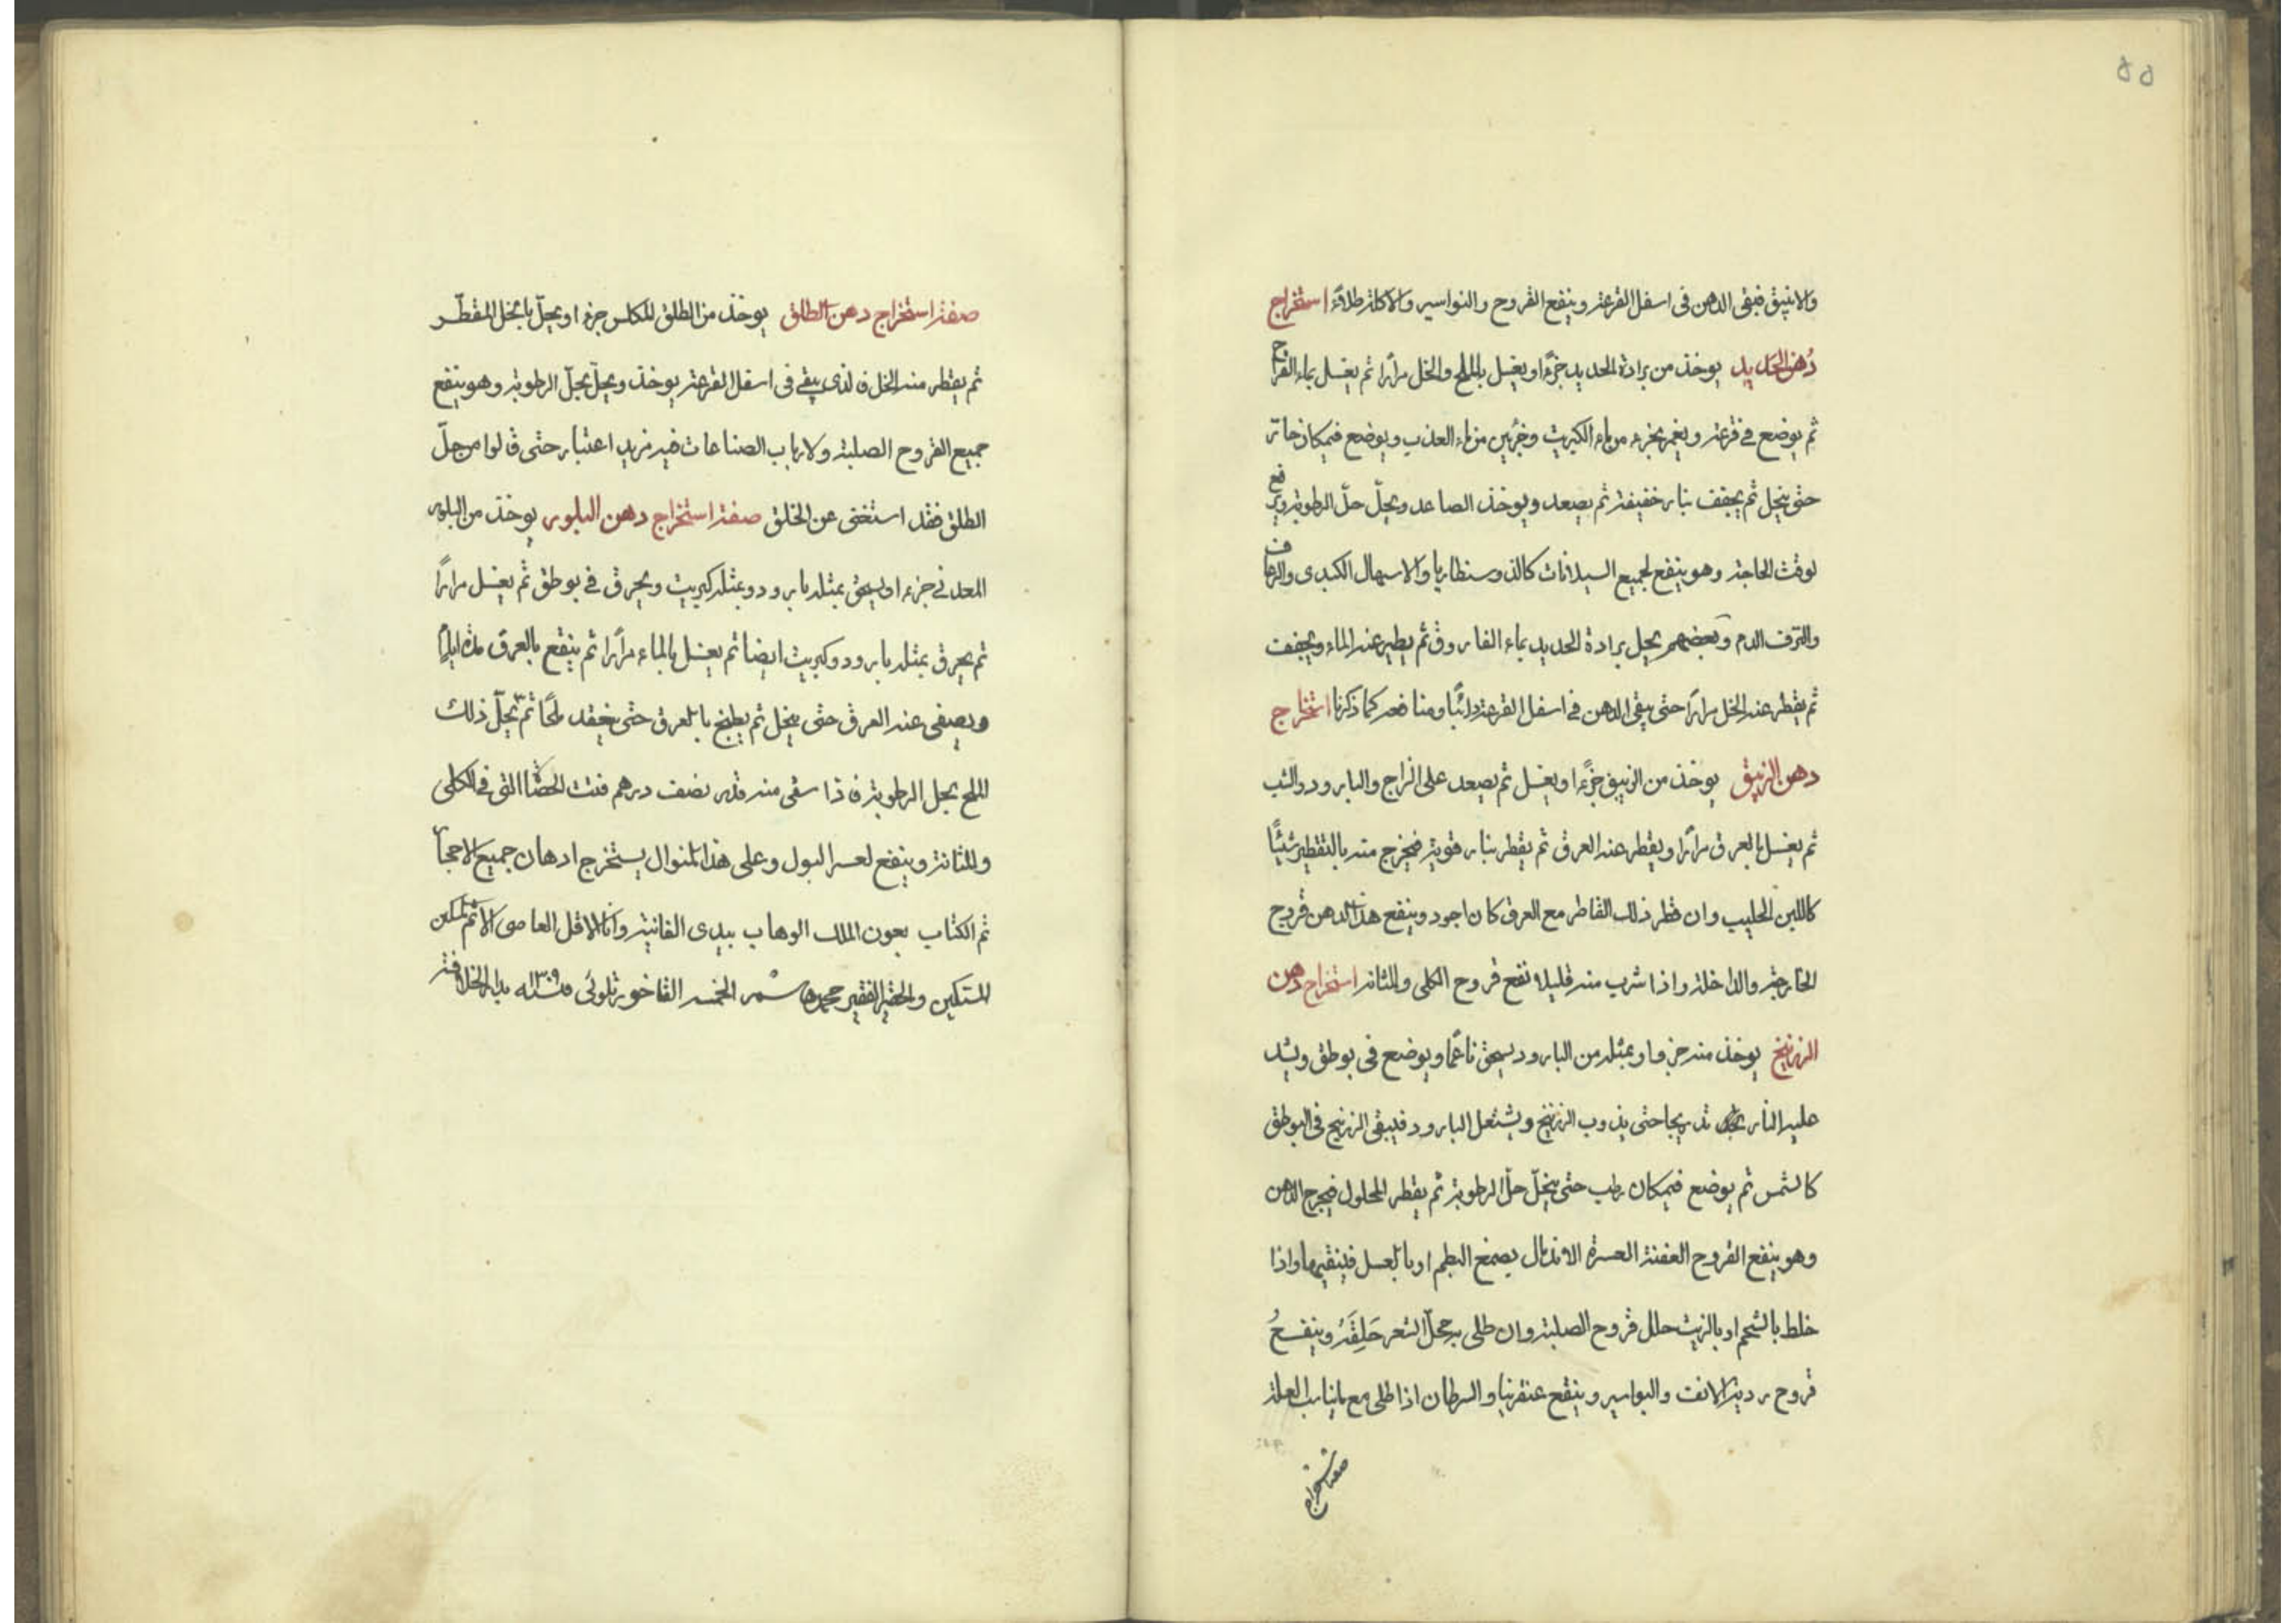 ٥٥
والانبيق فيبقى الدهن فى اسفل القرعة وينفع القروح والنواسير والاكلة طلاءً استخراج
دُهن الحَديد يوخذ من برادة الحديد جزءًا ويغسل بالملح والخل مرارًا ثم يغسل بماء القراح
ثم يوضع فى قرعة ويغمر بجزء من ماء الكبريت وجزئين من ماء العذب ويوضع فيمكان
حتى ينحل ثم يجفف بنار خفيفة ثم يصعد ويوخذ الصاعد ويحلّ حلّ الرطوبة ويرفع
لوقت الحاجة وهو ينفع لجميع السيلانات كالذوسنطاريا والاسهال الكبدى والرعاف
والنزف الدم وبعضهم يحل برادة الحديد بماء الفاروق ثم يطير عنه الماء ويجفف
ثم يقطر عنه الخل مرارًا حتى يبقى الدهن فى اسفل القرعة ذائبًا ومنافعه كما ذكرنا استخراج
دهن الزيبق يوخذ من الزيبق جزءًا ويغسل ثم يصعد على الزاج والبارود والشب
ثم يغسل بالعرق مرارًا ويقطر عنه العرق ثم يقطر بنار قوية فيخرج منه بالتقطير شيئًا
كاللبن الحليب وان قطر ذلك القاطر مع العرق كان اجود وينفع هذا الدهن قروح
الخارجة والداخلة واذا شرب منه قليلا نفع قروح الكلى والمثانة استخراج دهن
الزرنيخ يوخذ منه جزءا وبمثله من البارود يسحق ناعمًا ويوضع فى بوطق ويشد
عليه النار تدريجا حتى يذوب الزرنيخ ويشتعل البارود فيبقى الزرنيخ فى البوطق
كالشمس ثم يوضع فيمكان رطب حتى ينحلّ حلّ الرطوبة ثم يقطر المحلول فيخرج الدهن
وهو ينفع القروح العفنة العسرة الاندمال بصمغ البطم او بالعسل فينقيها واذا
خلط بالشحم او بالزيت حلل قروح الصلبة وان طلى به محلّ الشعر حَلِقَهُ وينفعُ
قروح ردية الانف والبواسير وينفع عنقرينا والسرطان اذا طلى مع مايناسب العلة
صفة استخراج
صفة استخراج دهن الطلق يوخذ من الطلق المكلس جزءا ويحلّ بالخل المقطّر
ثم يقطر منه الخل فالذى يبقى فى اسفل القرعة يوخذ ويحلّ بحلّ الرطوبة وهو ينفع
جميع القروح الصلبة ولارباب الصناعات فيه مزيد اعتبار حتى قالوا من حلّ
الطلق فقد استغنى عن الخلق صفة استخراج دهن البلور يوخذ من البلور
المعدنى جزءا ويسحق بمثله بارود وبمثله كبريت ويحرق فى بوطق ثم يغسل مرارًا
ثم يحرق بمثله بارود وكبريت ايضا ثم يغسل بالماء مرارًا ثم ينقع بالعرق مدة ايام
ويصفى عنه العرق حتى ينحل ثم يطبخ بالعرق حتى ينعقد ملحًا ثم يحلّ ذلك
الملح بحل الرطوبة فاذا سقى منه قدر نصف درهم فتت الحصا التى فى الكلى
والمثانة وينفع لعسر البول وعلى هذا المنوال يستخرج ادهان جميع الاحجار
تم الكتاب بعون الملك الوهاب بيدى الفانية وانا الاقل العاصى الاثم
المستكين والحقير الفقير محمد هاشم الفاخور بدار الخلافة